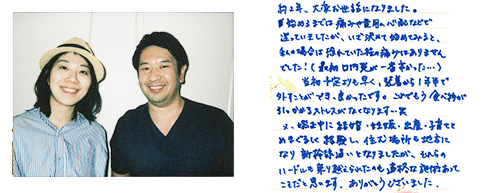 約2年、大変お世話になりました。
始めるまでは痛みや費用の心配などで
迷っていましたが、いざ決めて始めてみると、
私の場合は恐れていた程の痛みはありません
でした!(最初口内炎が一番辛かった…)
当初予定よりも早く、装着から1年半で
外すことができ、良かったです。これでもう食べ物が
引っかかるストレスがなくなります…笑
又、矯正中に結婚・妊娠・出産・子育てと
めまぐるしく経験し、住む場所も地方に
なり新幹線通いとなりましたが、それらの
ハードルも乗り越えられたのも適格な施術あって
ことだと思います。ありがとうございました。